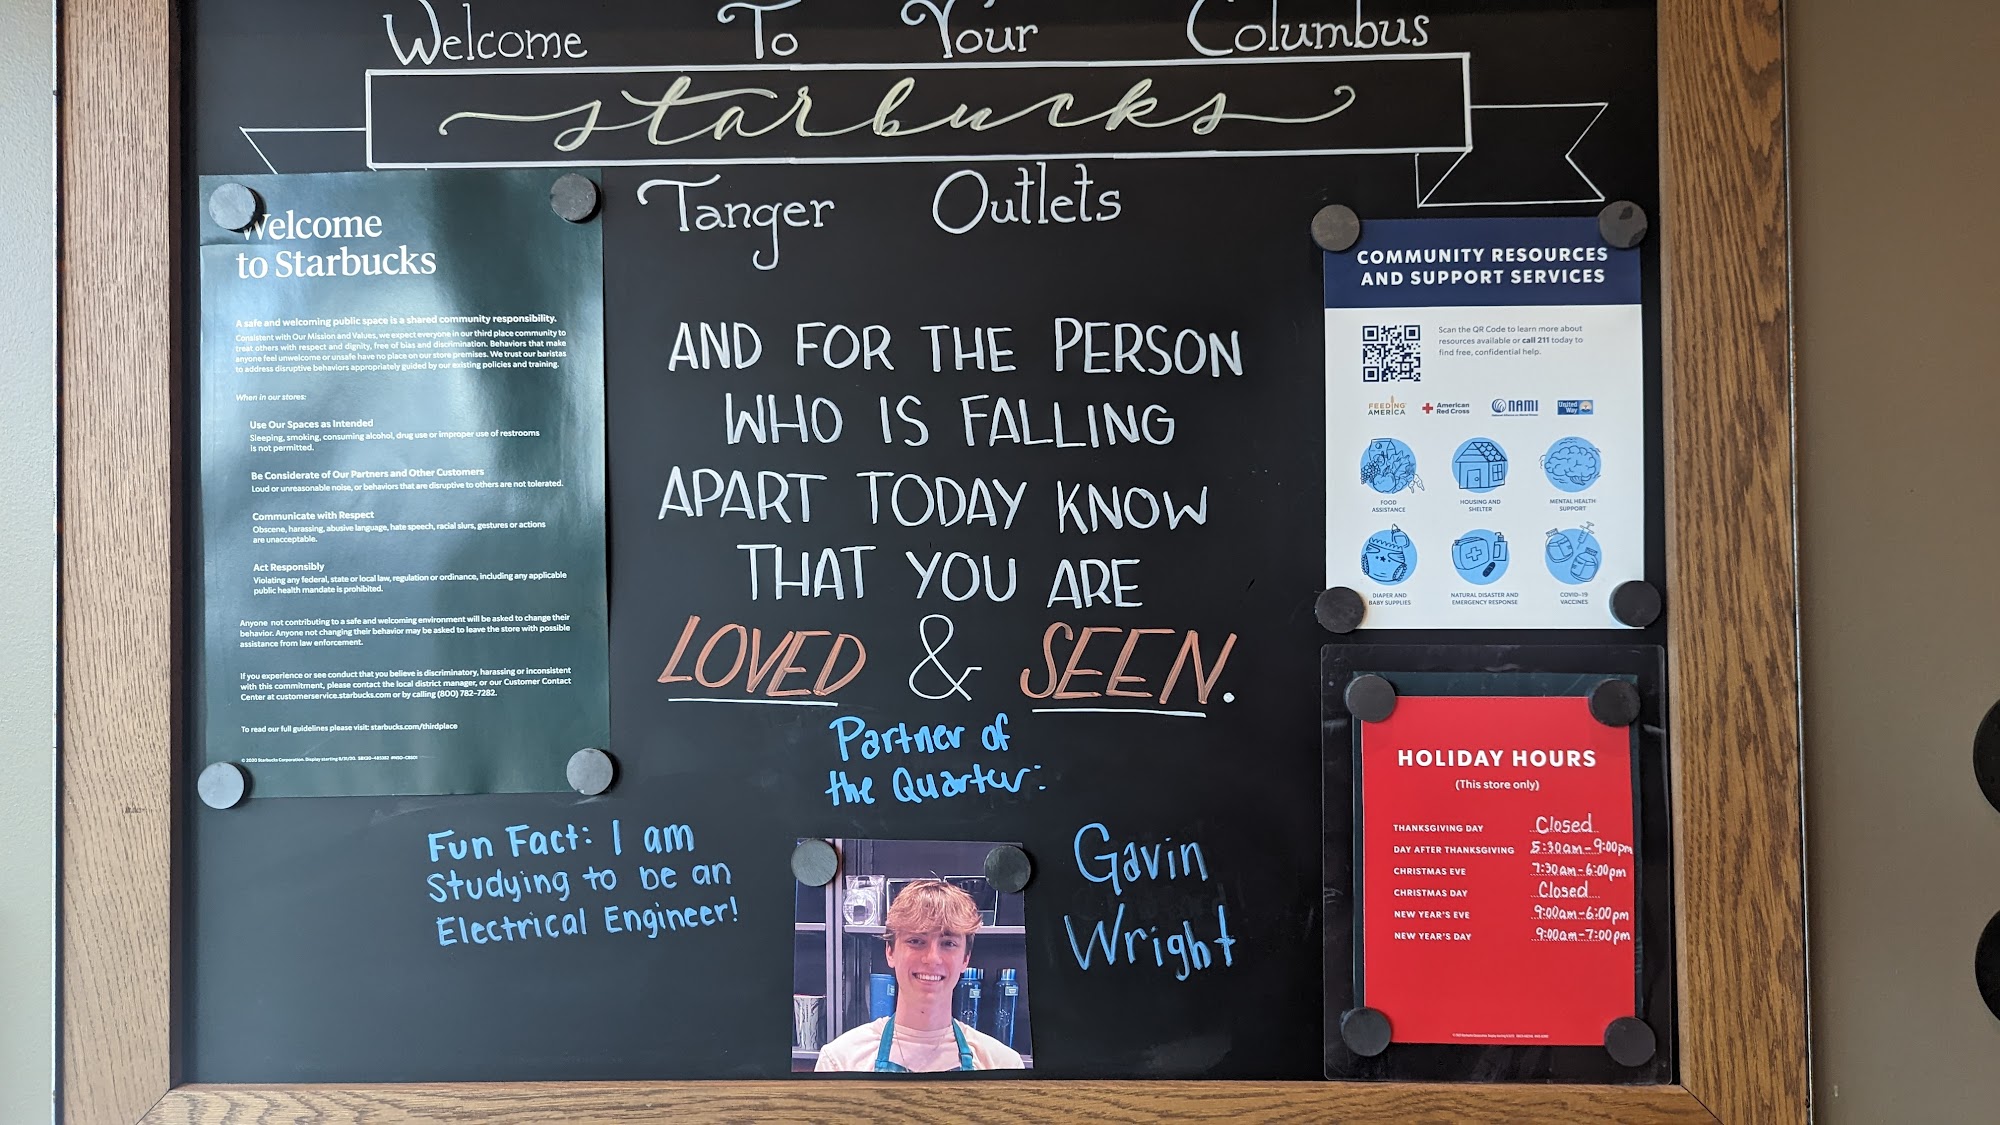 Welcome To Your Columbus
starbucks
Tanger Outlets
Welcome
to Starbucks
A safe and welcoming public space is a shared community responsibility.
Consistent with Our Mission and Values, we expect everyone in our third place community to
treat others with respect and dignity, free of bias and discrimination. Behaviors that make
anyone feel unwelcome or unsafe have no place on our store premises. We trust our baristas
to address disruptive behaviors appropriately guided by our existing policies and training.
When in our stores:
Use Our Spaces as Intended
Sleeping, smoking, consuming alcohol, drug use or improper use of restrooms
is not permitted.
Be Considerate of Our Partners and Other Customers
Loud or unreasonable noise, or behaviors that are disruptive to others are not tolerated.
Communicate with Respect
Obscene, harassing, abusive language, hate speech, racial slurs, gestures or actions
are unacceptable.
Act Responsibly
Violating any federal, state or local law, regulation or ordinance, including any applicable
public health mandate is prohibited.
Anyone not contributing to a safe and welcoming environment will be asked to change their
behavior. Anyone not changing their behavior may be asked to leave the store with possible
assistance from law enforcement.
If you experience or see conduct that you believe is discriminatory, harassing or inconsistent
with this commitment, please contact the local district manager, or our Customer Contact
Center at customerservice.starbucks.com or by calling (800) 782-7282.
To read our full guidelines please visit: starbucks.com/thirdplace
© 2020 Starbucks Corporation. Display starting 8/31/20.
AND FOR THE PERSON
WHO IS FALLING
APART TODAY KNOW
THAT YOU ARE
LOVED & SEEN.
Partner of
the Quarter:
Fun Fact: I am
Studying to be an
Electrical Engineer!
Gavin
Wright
COMMUNITY RESOURCES
AND SUPPORT SERVICES
Scan the QR Code to learn more about
resources available or call 211 today to
find free, confidential help.
FEEDING AMERICA
American Red Cross
NAMI
United Way
FOOD ASSISTANCE
HOUSING AND SHELTER
MENTAL HEALTH SUPPORT
DIAPER AND BABY SUPPLIES
NATURAL DISASTER AND EMERGENCY RESPONSE
COVID-19 VACCINES
HOLIDAY HOURS
(This store only)
THANKSGIVING DAY Closed
DAY AFTER THANKSGIVING 5:30am-9:00pm
CHRISTMAS EVE 7:30am-6:00pm
CHRISTMAS DAY Closed
NEW YEAR'S EVE 9:00am-6:00pm
NEW YEAR'S DAY 9:00am-7:00pm